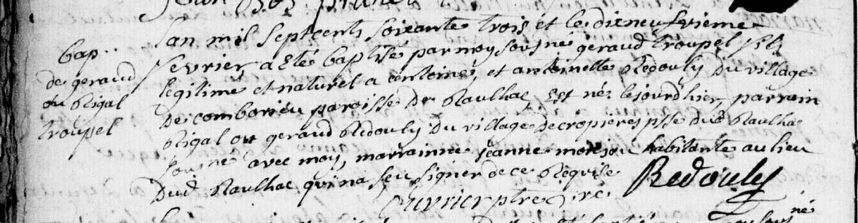 bap..
de geraud
ou Rigal
troupel
Lan mil septcents soixante trois et le dieneufvieme
fevrier a eté baptisé par moy sousné geraud troupel fils
legitime et naturel a antoine, et antoinette Redouly du village
de comborieu paroisse de Raulhac, est né le jourdhier, parrain
Rigal ou geraud Redouly du village de cropieres psse dud Raulhac
sousné avec moy, marrainne jeanne habitante au lieu
dud Raulhac qui na seu signer de ce Requise
Redouly
ptre